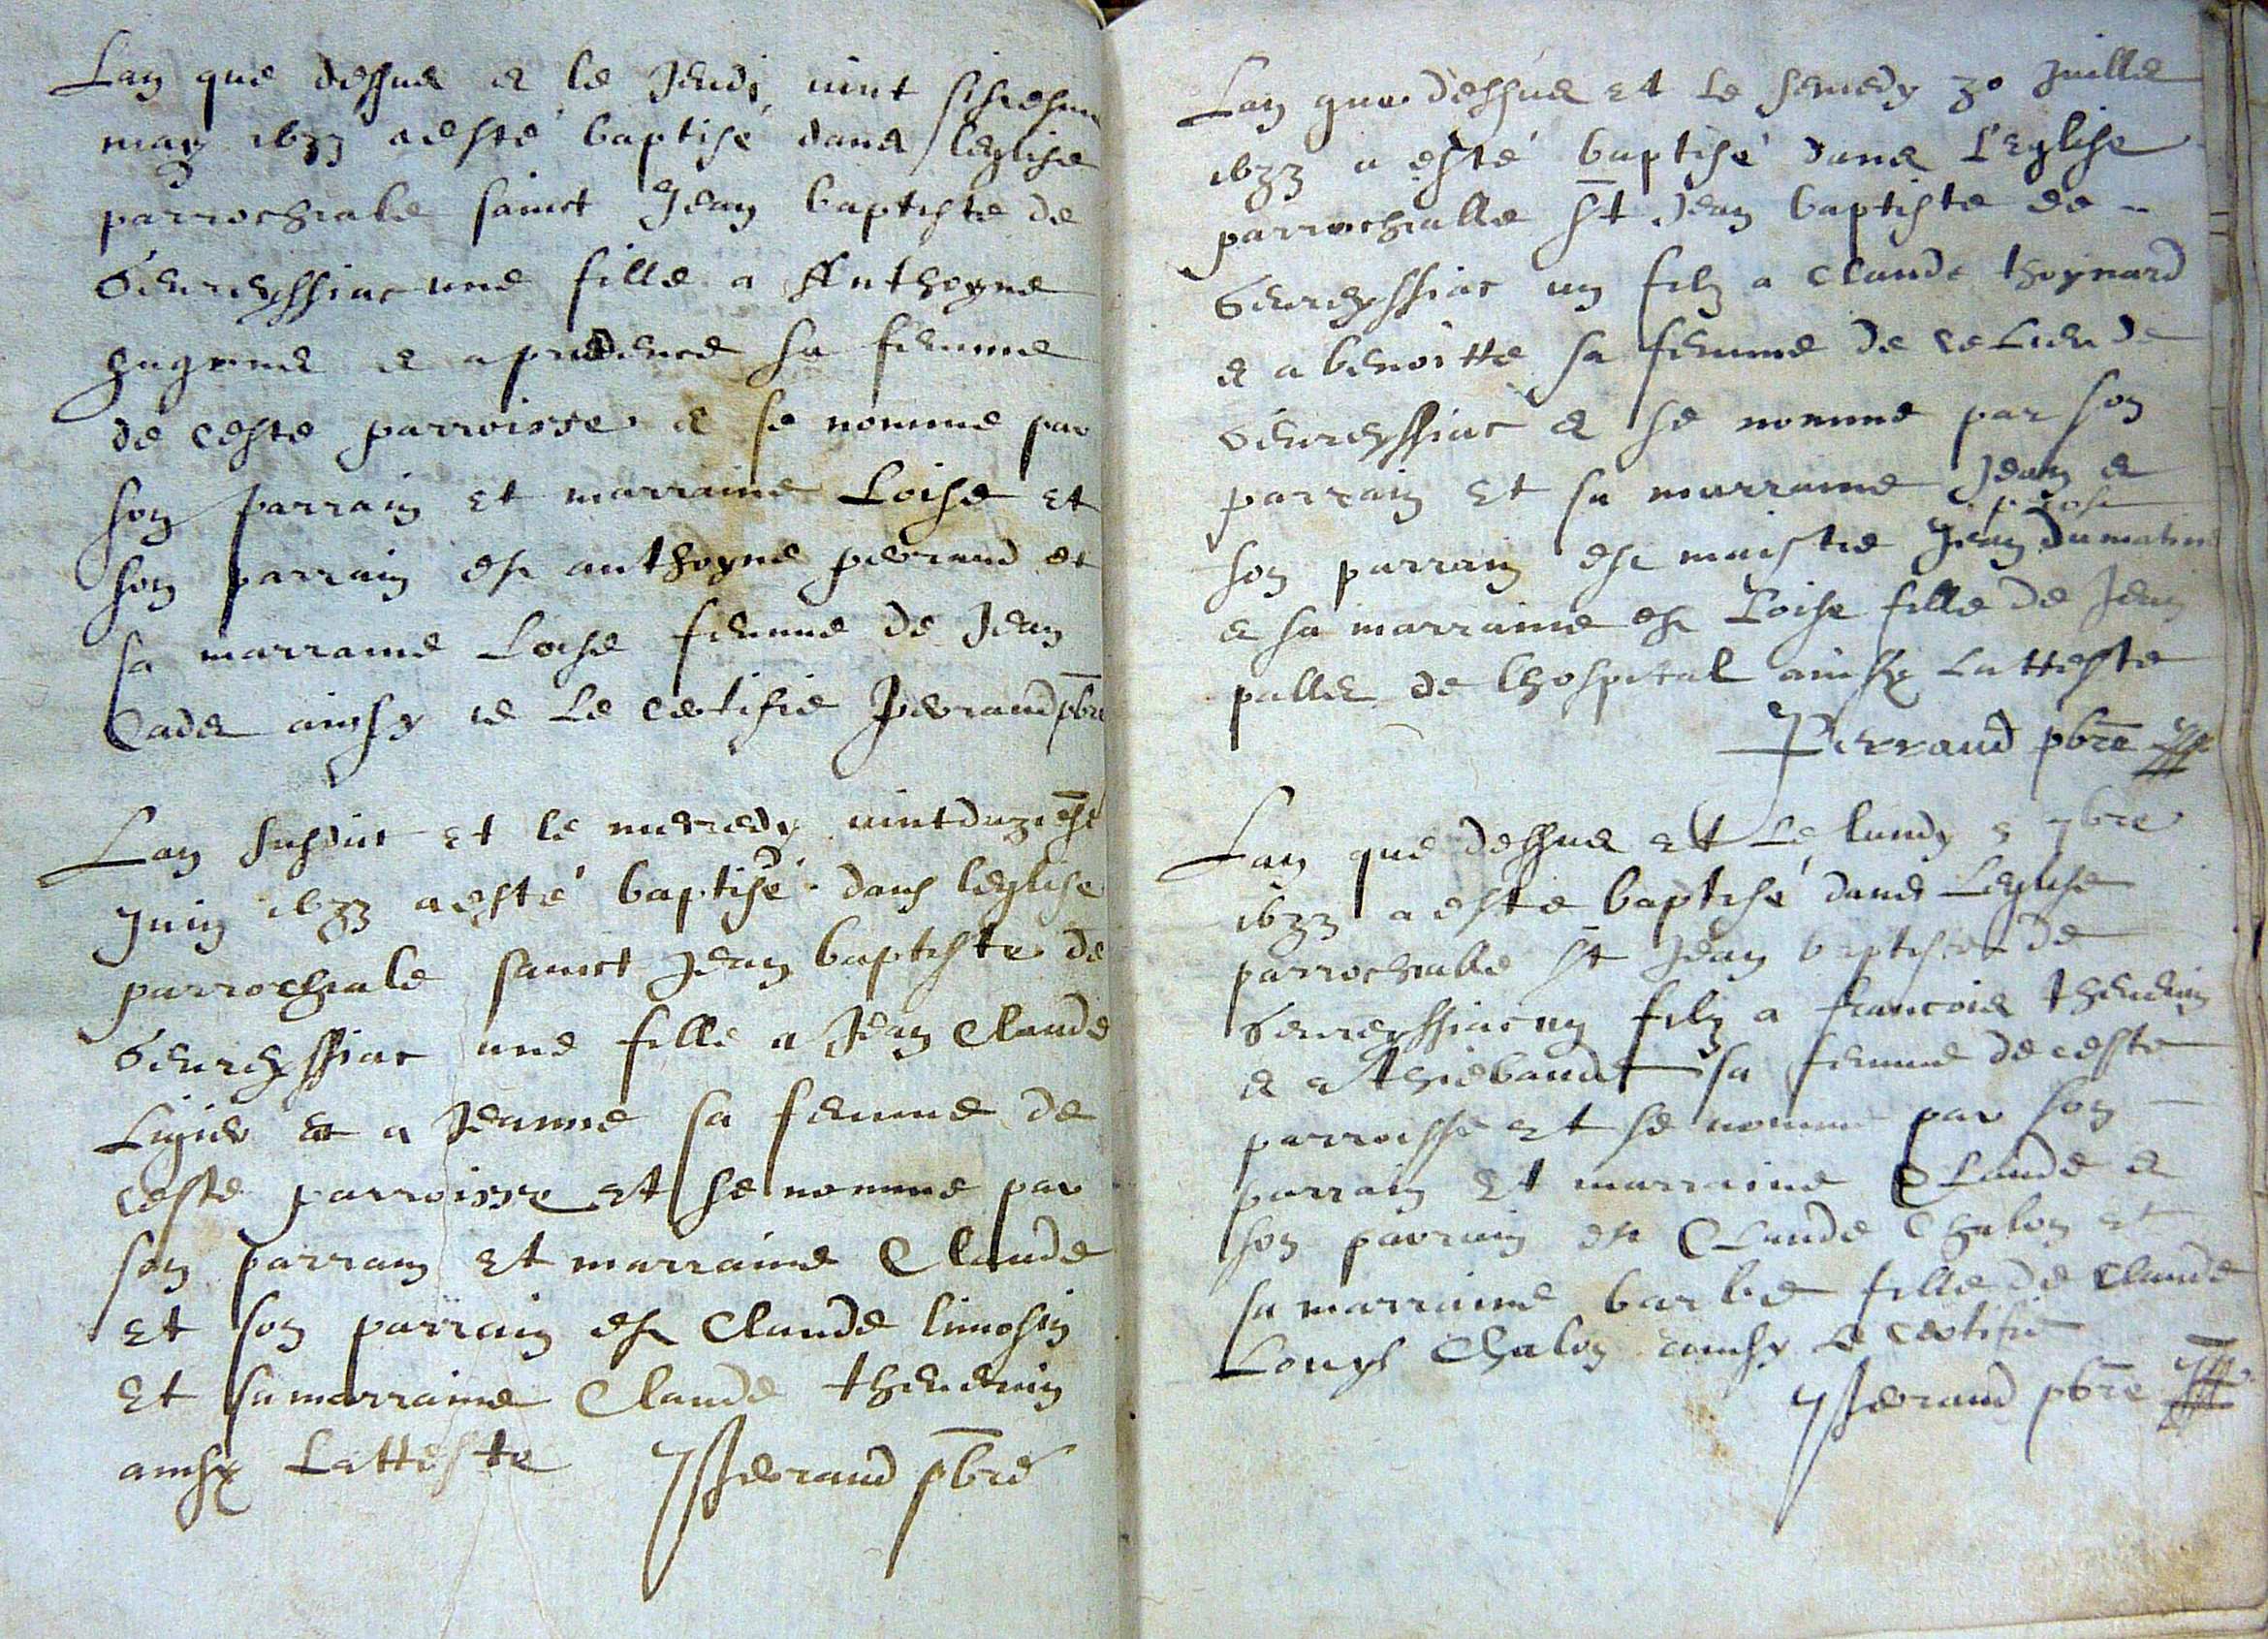 Lan que dessus & le Jeudi vint sisiesme
may 1633 a esté baptisé dans leglise
parrochiale sainct Jean baptiste de
Seureyssiac une fille a Anthoyne
hugonne & a prudence sa femme
de ceste parroisse & se nomme par
son parrain et marraine Loise et
son parrain est anthoyne perraud et
sa marraine Loise femme de Jean
Cade ainsy ie le certifie Perraud pbre
Lan susdict et le mecredy vint
Juin 1633 a esté baptisé dans leglise
parrochiale sainct Jean baptiste de
Seureyssiac une fille a Jean Claude
Ligier et a Jeanne sa femme de
ceste parroisse et se nomme par
son parrain et marraine Claude
et son parrain est Claude limosin
et sa marraine Claude thevenin
ainsy Latteste Perraud pbre
Lan que dessus et le semedy 30 Juillet
1633 a esté baptisé dans L'Eglise
parrochialle St Jean baptiste de
Seureyssiac un filz a Claude thoynard
& a benoitte sa femme de ce Lieu de
Seureyssiac & se nomme par son
parrain et sa marraine Jean &
son parrain est maistre Jean dumatin
& sa marraine est Loise fille de Jean
pallez de lhospital ainsy Latteste
Perraud pbre
Lan que dessus et Le lundy 5 7bre
1633 a esté baptisé dans Leglise
parrochialle St Jean baptiste de
Seureyssiac un filz a francois thevenin
& a thiebaude sa femme de ceste
parroisse et se nomme par son
parrain et marraine Claude &
son parrain est Claude Chalon et
sa marraine barbe fille de Claude
Louys Chalon ainsy Le certifie
Perraud pbre